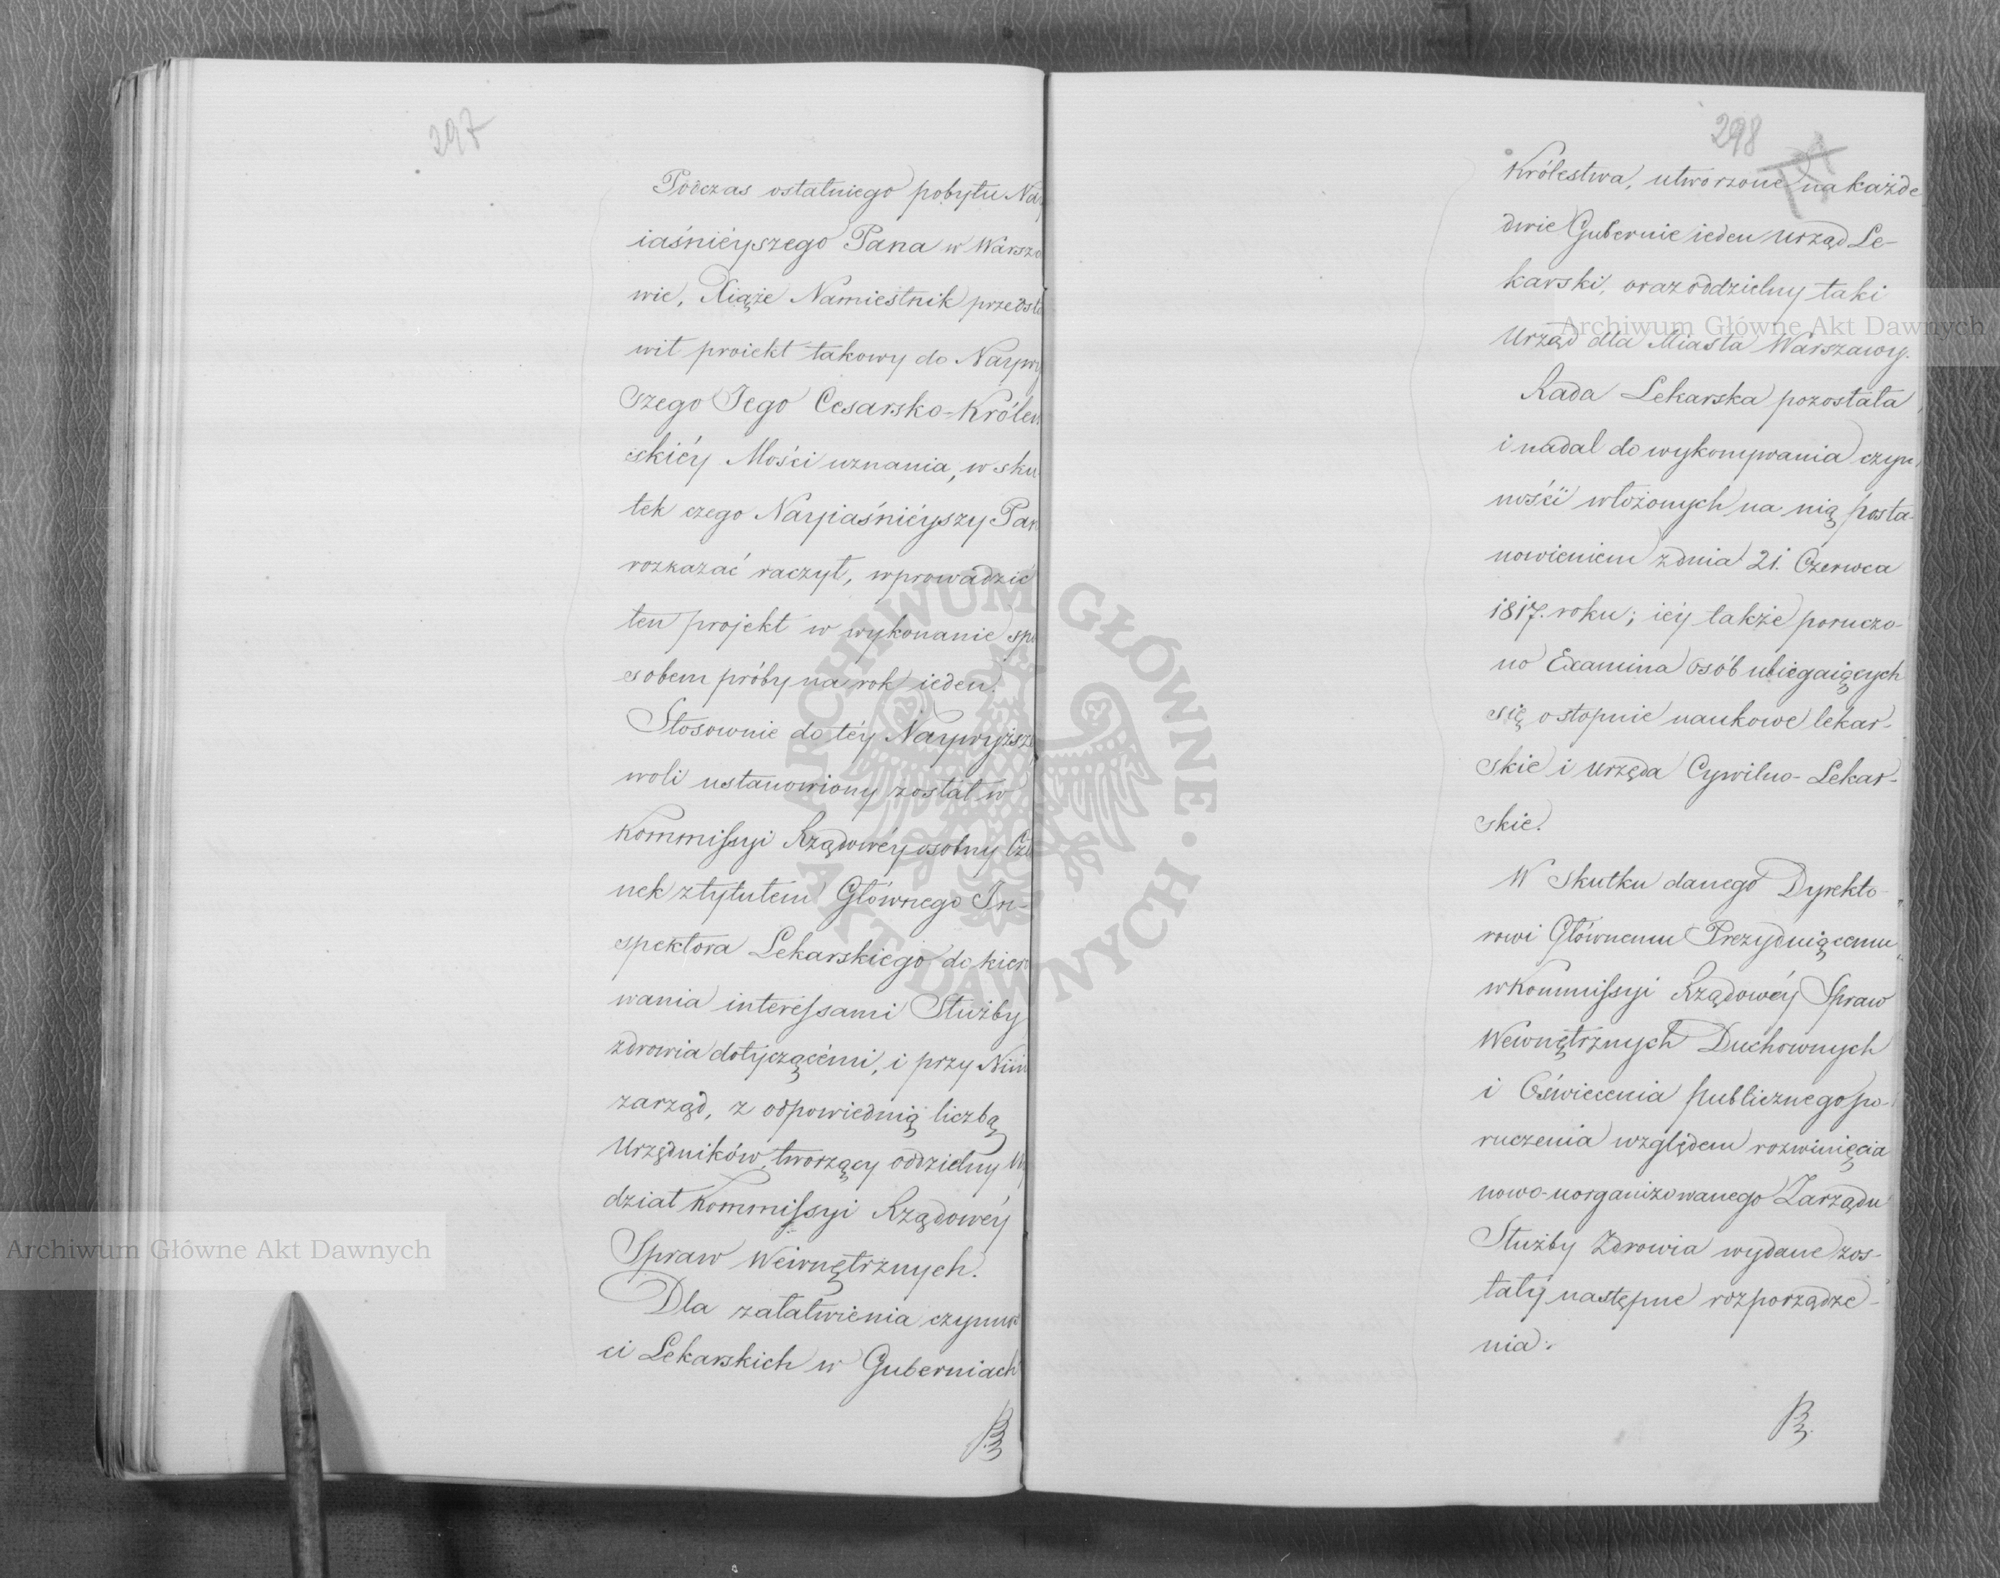 297
Podczas ostatniego pobytu Nay
iaśnieyszego Pana w Warsza
wie, Xiąże Namiestnik przedsta
wił proiekt takowy do Naywy
szego Jego Cesarsko-Królew
skiéy Mości uznania, w sku
tek czego Nayiaśnieyszy Pan
rozkazać raczył, wprowadzić
ten projekt w wykonanie spo
sobem próby na rok ieden.
Stosownie do téy Naywyższe
woli ustanowiony został w
Kommissyi Rządowéy osobny Czło
nek z tytułem Głównego In-
spektora Lekarskiego do kiero
wania interessami Służby
zdrowia dotyczącémi, i przy Nim
zarząd, z odpowiednią liczbą
Urzędników, tworzący oddzielny Wy
dział Kommissyi Rządowéy
Spraw Wewnętrznych.
Dla załatwienia czynnoś
ci Lekarskich w Guberniach
298
Królestwa, utworzone na każde
dwie Gubernie ieden Urząd Le-
karski, oraz oddzielny taki
Urząd dla Miasta Warszawy.
Rada Lekarska pozostała
i nadal do wykonywania czyn
ności włożonych na nią posta-
nowieniem z dnia 21. Czerwca
1817. roku; iéy także poruczo-
no Examina osób ubiegaiących
się o stopnie naukowe lekar-
skie i urzęda Cywilno-Lekar-
skie.
W skutku danego Dyrekto-
rowi Głównemu Prezyduiącemu
w Kommissyi Rządowéy Spraw
Wewnętrznych Duchownych
i Oświecenia publicznego po-
ruczenia względem rozwinięcia
nowo-uorganizowanego Zarządu
Służby Zdrowia wydane zos-
tały następne rozporządze-
nia:
Archiwum Główne Akt Dawnych
Archiwum Główne Akt Dawnych
ARCHIWUM GŁÓWNE AKT DAWNYCH